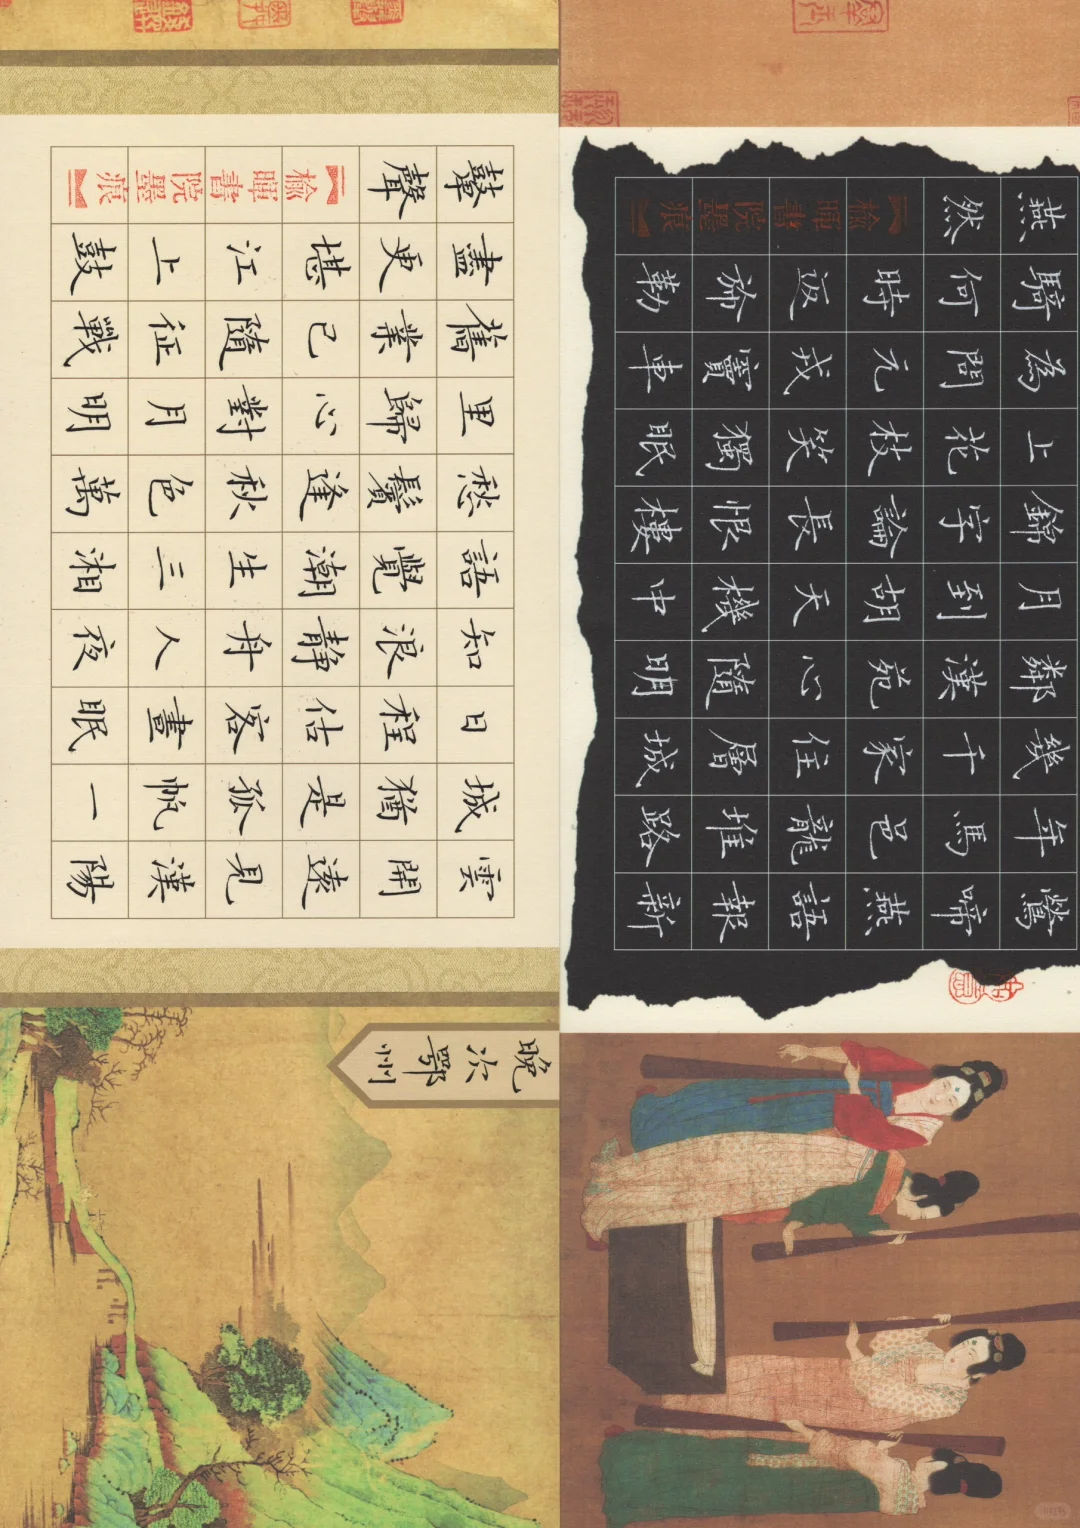 晚次鄂州
雲開遠見漢陽
城猶是孤帆一
日程估客晝眠
知浪靜舟人夜
語覺潮生三湘
愁鬢逢秋色萬
里歸心對月明
舊業已隨征戰
盡更堪江上鼓
鼙聲
榆暉書院墨痕
鶯啼燕語報新
年馬邑龍堆路
幾千家住層城
鄰漢苑心隨明
月到胡天機中
錦字論長恨樓
上花枝笑獨眠
為問元戎竇車
騎何時返旆勒
燕然
榆暉書院墨痕